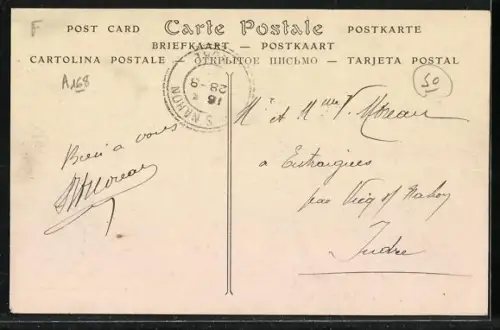 F
POST CARD Carte Postale POSTKARTE
BRIEFKAART — POSTKAART
CARTOLINA POSTALE — ОТКРЫТОЕ ПИСЬМО — TARJETA POSTAL
A168
50
S NAHON
16
28-8
Mr et Mme V. Moreau
à Entraigues
par Vicq s/ Nahon
Indre
Bien à vous
Moreau